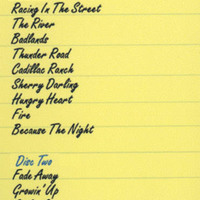 Racing In The Street
The River
Badlands
Thunder Road
Cadillac Ranch
Sherry Darling
Hungry Heart
Fire
Because The Night
Disc Two
Fade Away
Growin' Up